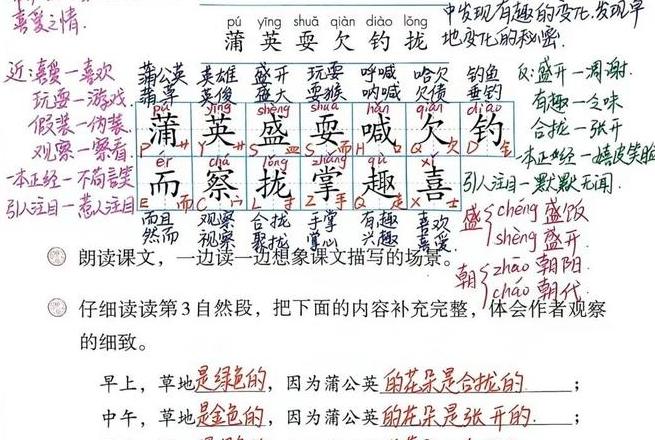 喜爱之情.
中发现有趣的变化,发现草
地变化的秘密.
pú yīng shuǎ qiàn diào lǒng
蒲英耍欠钓拢
近:喜爱—喜欢
玩耍—游戏
假装—伪装
观察—察看
一本正经—不苟言笑
引人注目—惹人注目
蒲公英 英雄 盛开 玩耍 呼喊 哈欠 钓鱼
蒲草 英俊 盛大 耍猴 呐喊 欠债 垂钓
pú yīng shèng shuǎ hǎn qiàn diào
蒲英盛耍喊欠钓
P 艹 Y 艹 S 皿 S 而 H 口 Q 欠 D 钅
ér chá lǒng zhǎng qù xǐ
而察拢掌趣喜
E 而 C 宀 L 扌 Z 手 Q 走 X 士
而且 观察 合拢 手掌 有趣 喜欢
然而 视察 聚拢 掌心 兴趣 喜爱
反:盛开—凋谢.
有趣—乏味
合拢—张开
一本正经—嬉皮笑脸
引人注目—默默无闻.
盛 chéng 盛饭
shèng 盛开
朝 zhāo 朝阳.
cháo 朝代.
朗读课文,一边读一边想象课文描写的场景。
仔细读读第3自然段,把下面的内容补充完整,体会作者观察
的细致。
早上,草地是绿色的,因为蒲公英的花朵是合拢的;
中午,草地是金色的,因为蒲公英的花朵是张开的.;